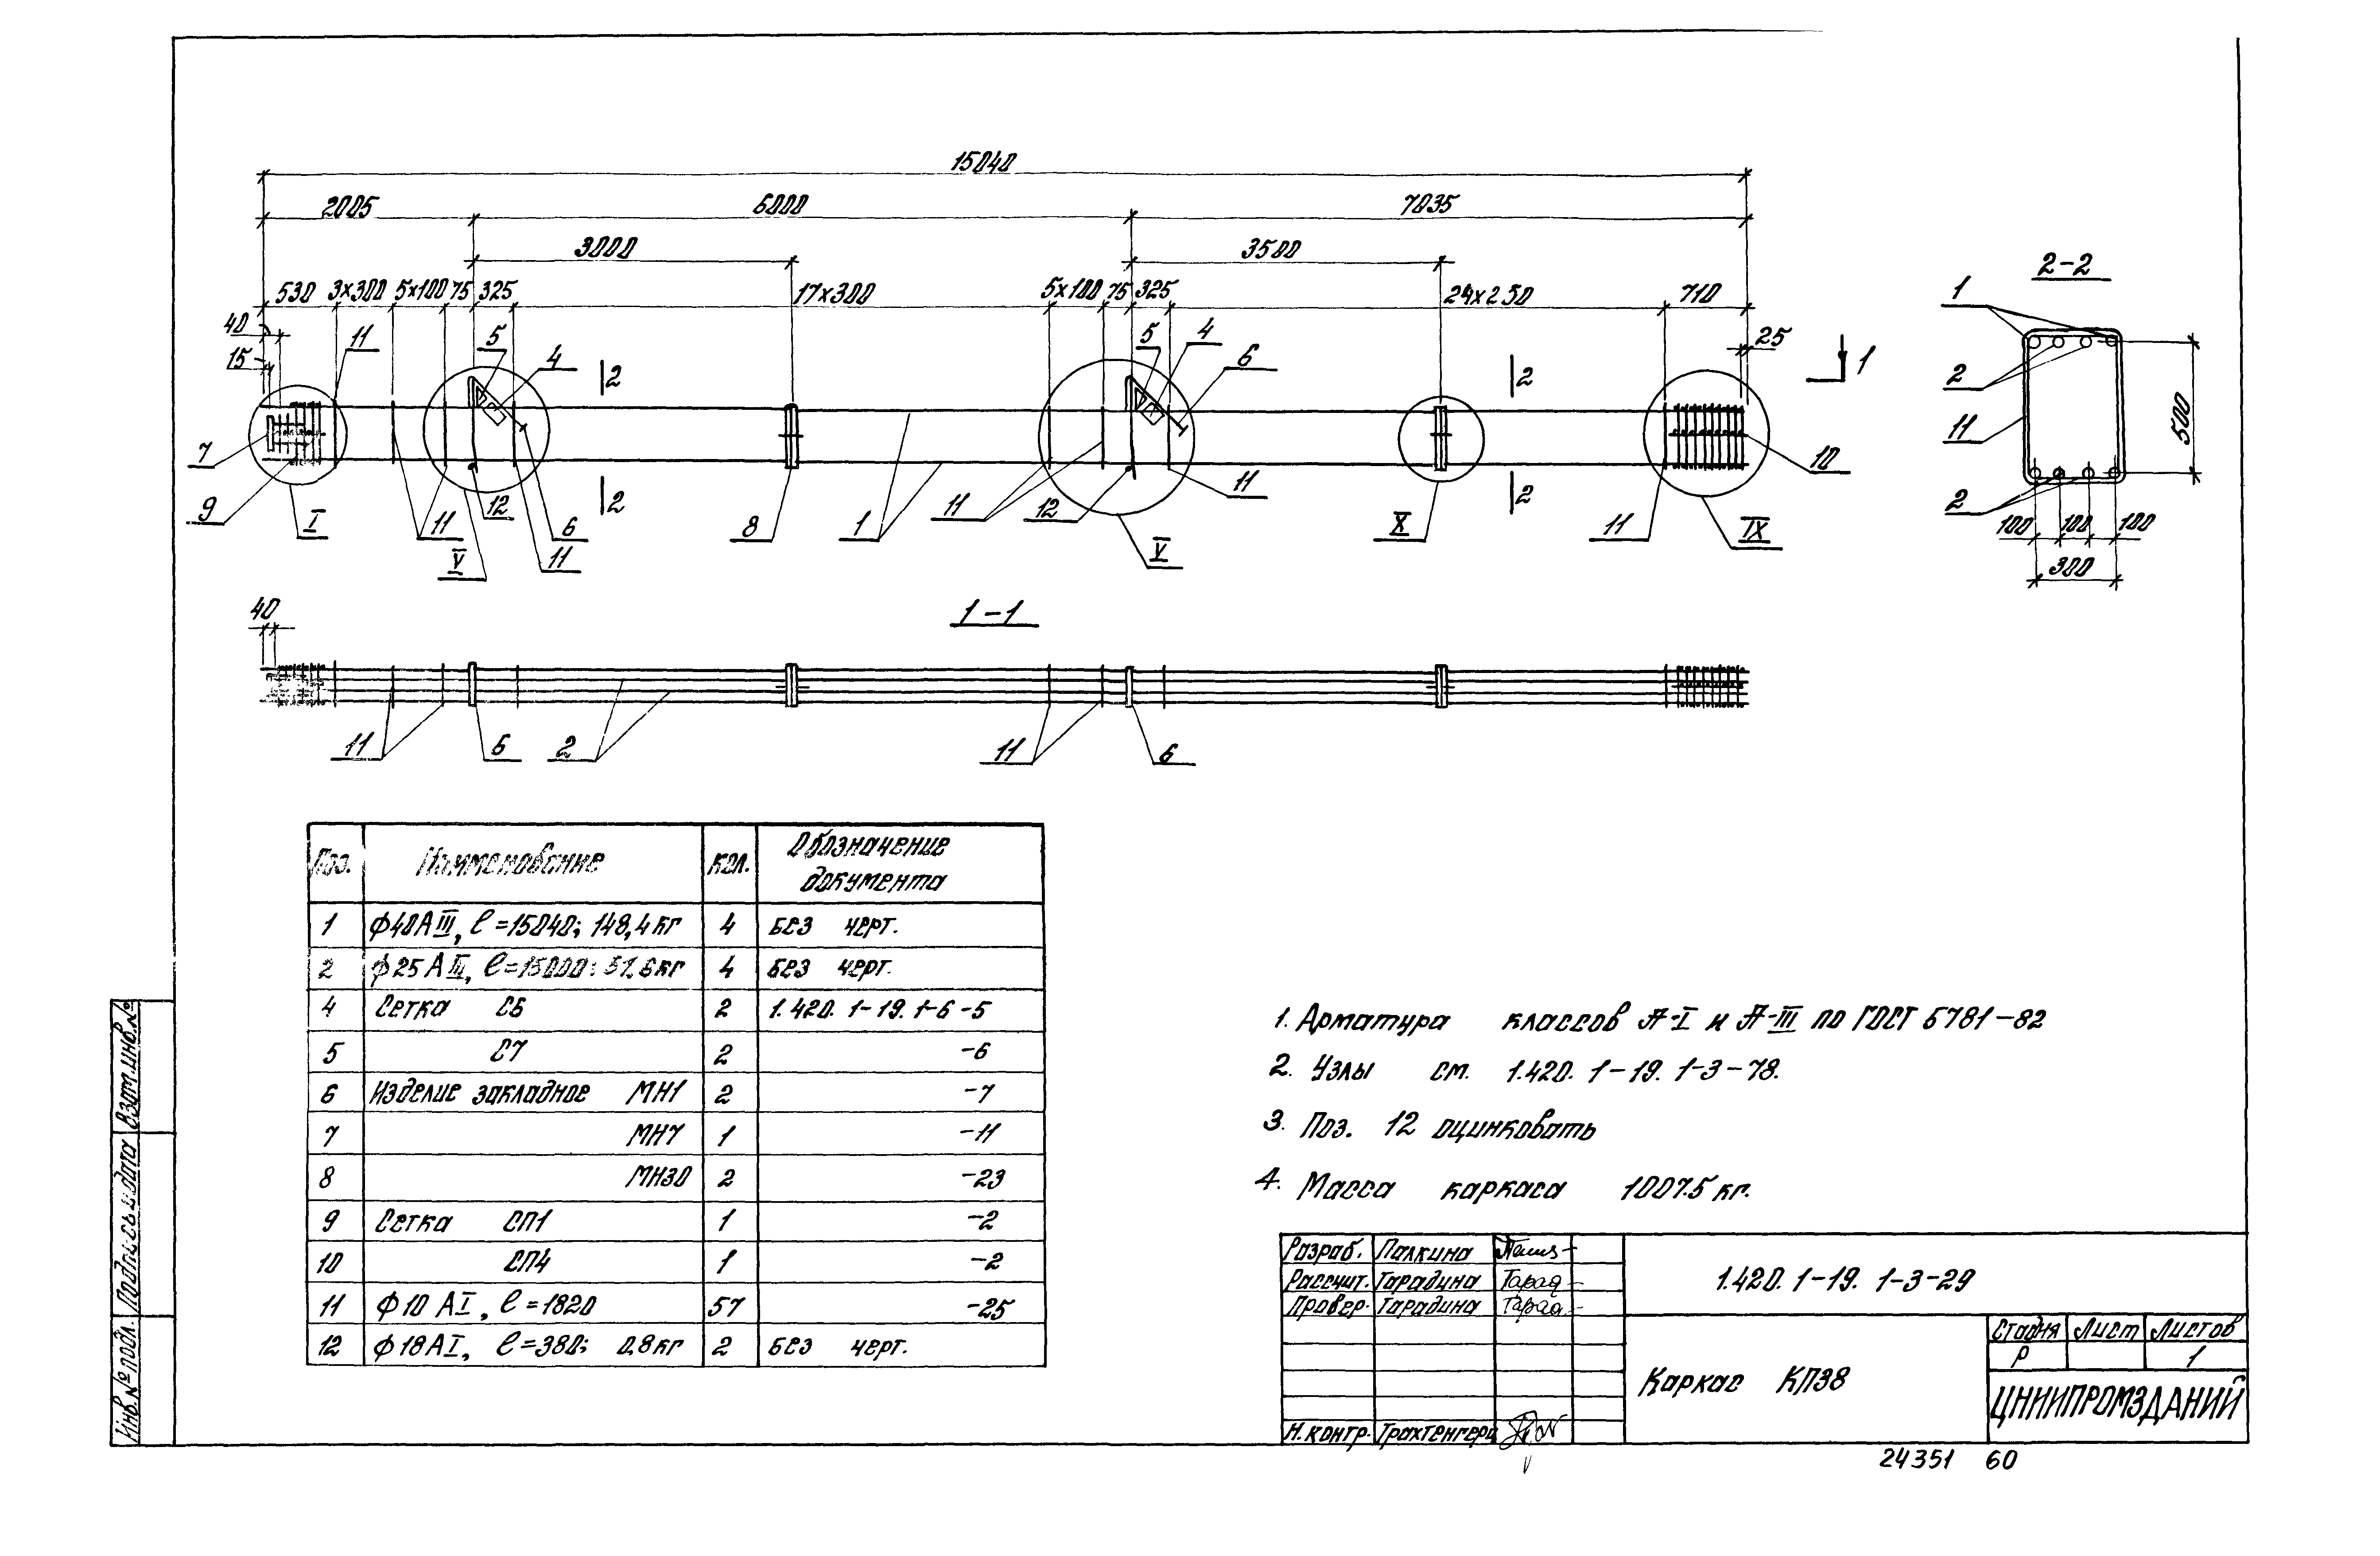 15040
2005 6000 7035
3000 3500
530 3х300 5х100 75 325 17х300 5х100 75 325 24х250 710
40 11 5 4 5 4 6 25
15 2 2 1
7 10
9 I 12 11 6 8 1 11 12 11 X 11 IX
V 11 V
2 2
2-2
1
2
11
2
500
100 100 100
300
1-1
40
11 6 2 11 6
Поз. Наименование кол. Обозначение документа
1 ф40АIII, ℓ=15040; 148,4 кг 4 без черт.
2 ф25АIII, ℓ=15000; 57.6кг 4 без черт.
4 Сетка С6 2 1.420.1-19.1-6-5
5 С7 2 -6
6 Изделие закладное МН1 2 -7
7 МН7 1 -11
8 МН30 2 -23
9 Сетка СП1 1 -2
10 СП4 1 -2
11 ф10 АI, ℓ=1820 57 -25
12 ф18АI, ℓ=380; 0.8кг 2 без черт.
1. Арматура классов А-I и А-III по ГОСТ 5781-82
2. Узлы см. 1.420.1-19.1-3-78.
3. Поз. 12 оцинковать
4. Масса каркаса 1007.5 кг.
Разраб. Палкина
Рассчит. Тарадина Тарад
Провер. Тарадина Тарад
Н.контр. Трахтенгерц
1.420.1-19.1-3-29
Каркас КП38
Стадия Лист Листов
Р 1
ЦНИИПРОМЗДАНИЙ
24351 60
Инв.№ подл. Подпись и дата Взам.инв.№